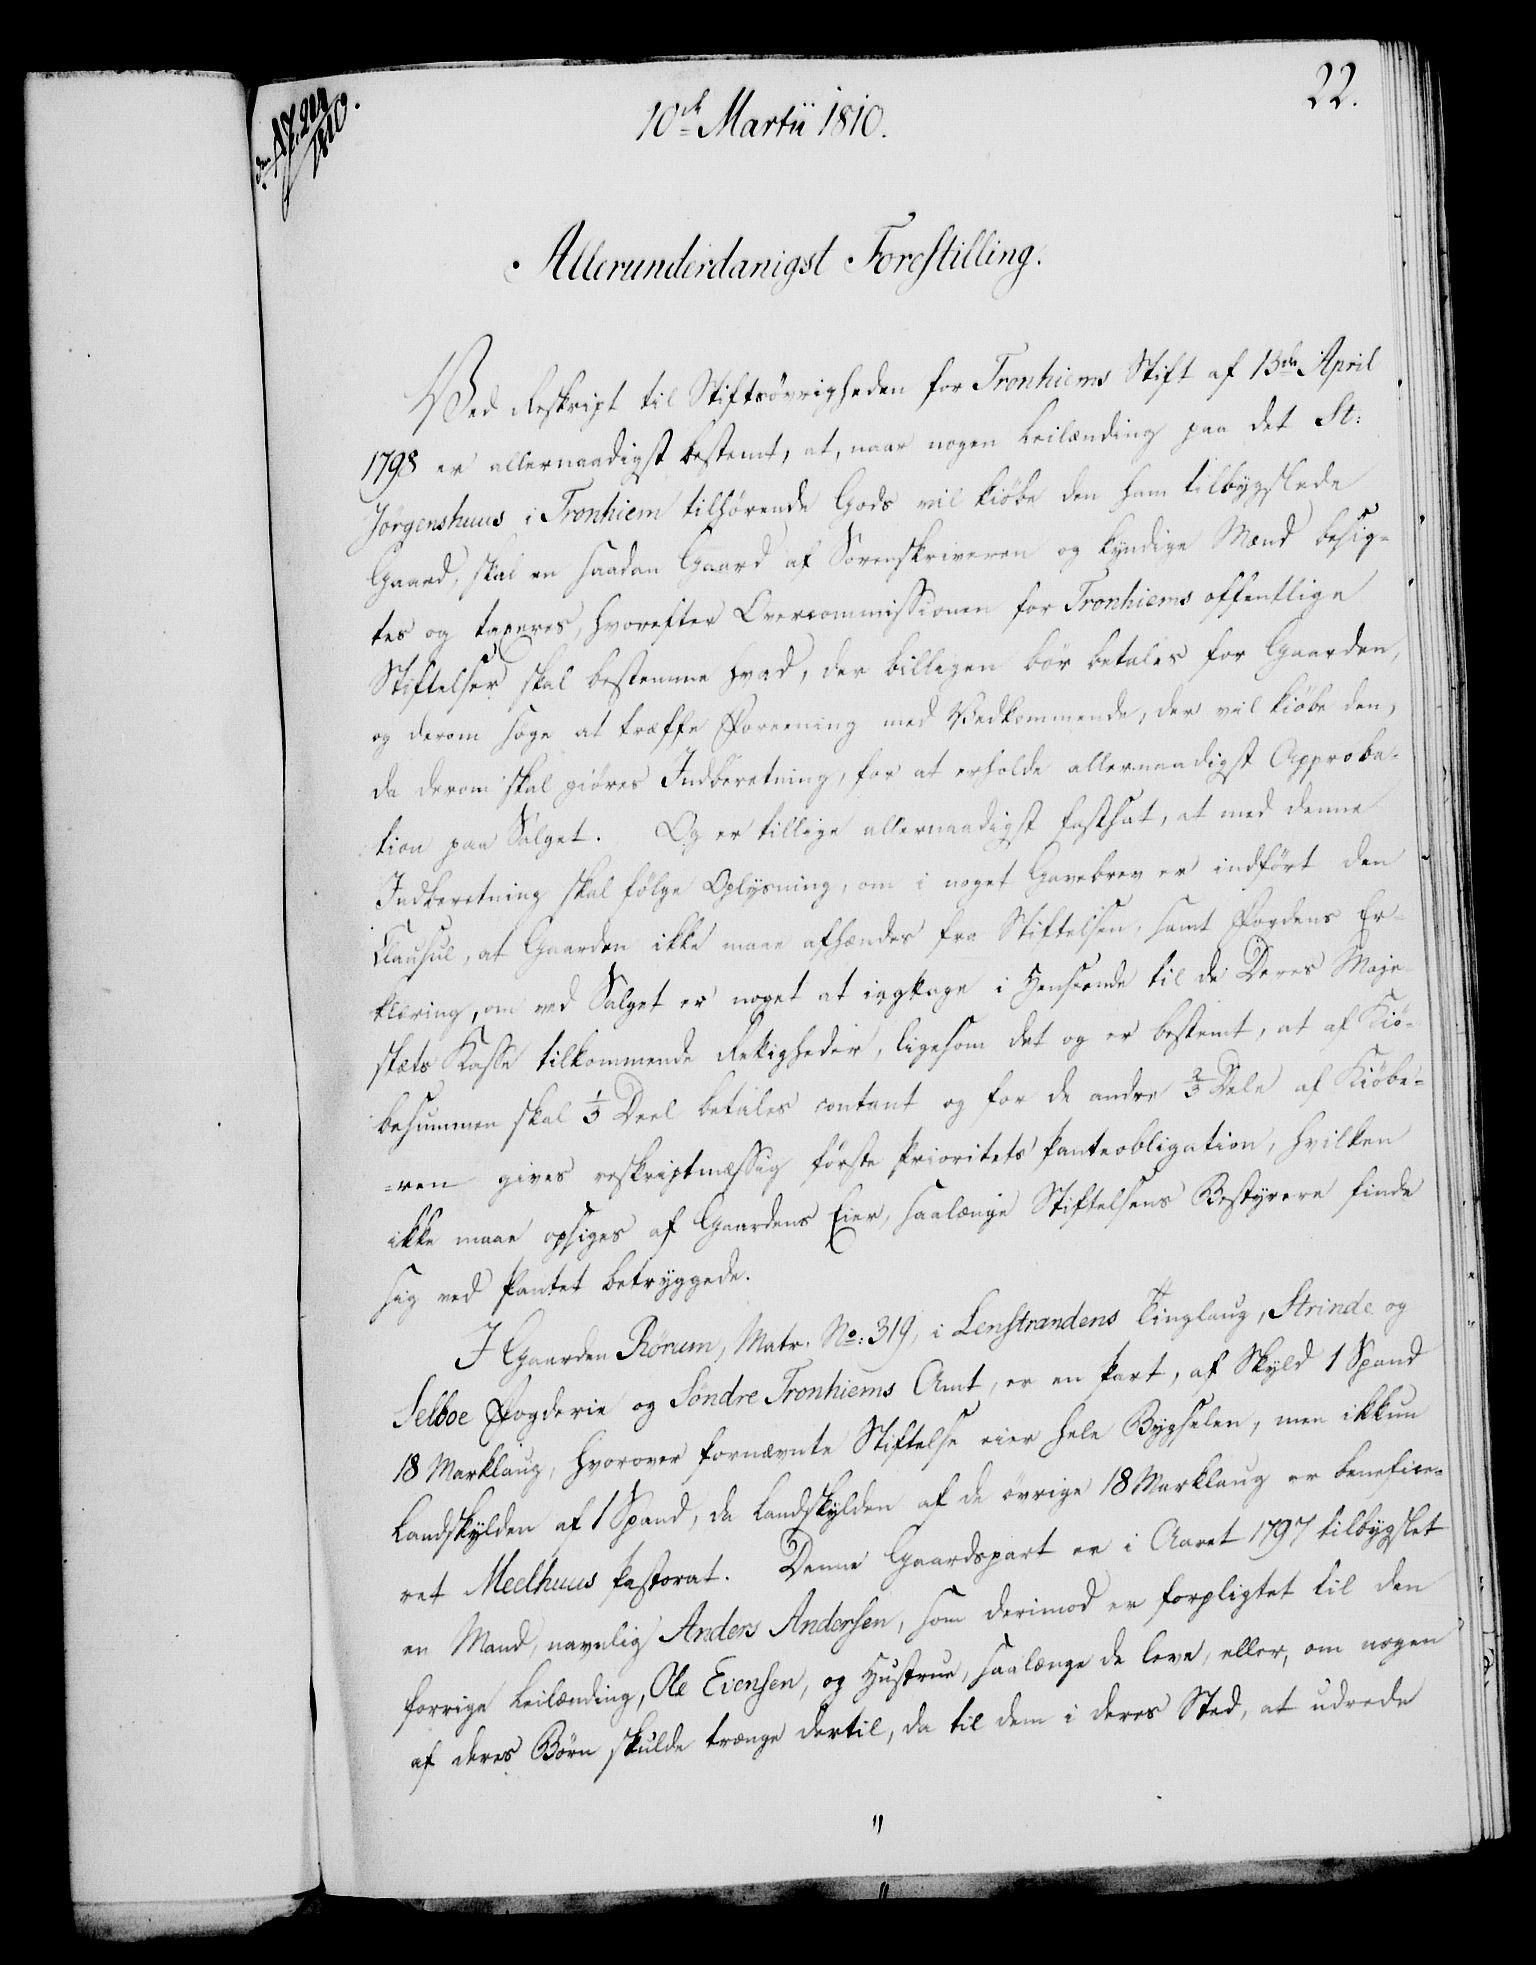 22.
10de Martii 1810.
Allerunderdanigst Forestilling.
Ved Reskript til Stiftsövrigheden for Tronhiems Stift af 13de April
1798 er allernaadigst bestemt, at, naar nogen Leilænding paa det St:
Jörgenshuus i Tronhiem tilhörende Gods vil kiöbe den ham tilbygslede
Gaard, skal en saadan Gaard af Sorenskriveren og kyndige Mænd besig-
tes og taxeres, hvorefter Overcommissionen for Tronhiems offentlige
Stiftelser skal bestemme hvad, der billigen bör betales for Gaarden,
og derom söge at træffe Foreening med Vedkommende, der vil kiöbe den,
da derom skal giöres Indberetning, for at erholde allernaadigst Approba-
tion paa Salget. Og er tillige allernaadigst fastsat, at med denne
Indberetning skal fölge Oplysning, om i noget Gavebrev er indfört den
Clausul, at Gaarden ikke maae afhændes fra Stiftelsen, samt Fogdens Er-
klæring, om ved Salget er noget at iagttage i Henseende til de Deres Maje-
stæts Kasse tilkommende Rettigheder, ligesom det og er bestemt, at af Kiö-
besummen skal 1/3 Deel betales contant og for de andre 2/3 Dele af Kiöbe-
=ren gives reskriptmæssig förste Prioritets Panteobligation, hvilken
ikke maae opsiges af Gaardens Eier, saalænge Stiftelsens Bestyrere finde
sig ved Pantet betryggede.
I Gaarden Rönum, Matr. No: 319, i Lenstrandens Tinglaug, Strinde og
Selboe Fogderie og Söndre Tronhiems Amt, er en Part, af Skyld 1 Spand
18 Marklaug, hvorover fornævnte Stiftelse eier hele Bygselen, men ikkun
Landskylden af 1 Spand, da Landskylden af de övrige 18 Marklaug er benefice-
ret Meelhuus Pastorat. Denne Gaardspart er i Aaret 1797 tilbygslet
en Mand, navnlig Anders Andersen, som derimod er forpligtet til den
forrige Leilænding, Ole Evensen, og Hustrue, saalænge de leve, eller, om nogen
af deres Börn skulde trænge dertil, da til dem i deres Sted, at udrede